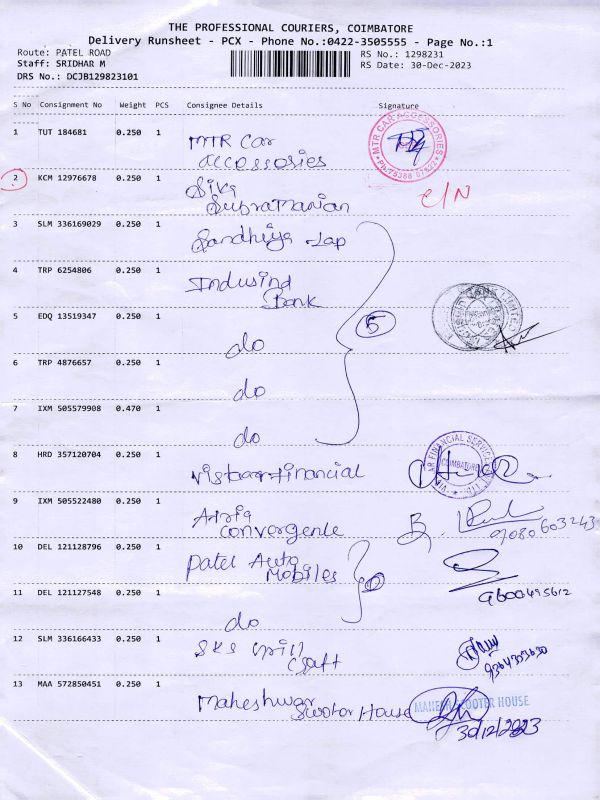 THE PROFESSIONAL COURIERS, COIMBATORE
Delivery Runsheet - PCX - Phone No.:0422-3505555 - Page No.:1
Route: PATEL ROAD
RS No.: 1298231
Staff: SRIDHAR M
RS Date: 30-Dec-2023
DRS No.: DCJB129823101
S No Consignment No Weight PCS Consignee Details Signature
1 TUT 184681 0.250 1 MTR Car
accessories
MTR CAR ACCESSORIES
2 KCM 12976678 0.250 1 Siva
Subramanian
C/N
3 SLM 336169029 0.250 1 Sandhiya Lap
4 TRP 6254806 0.250 1 Indusind
Bank
5 EDQ 13519347 0.250 1 do
5
6 TRP 4876657 0.250 1 do
7 IXM 505579908 0.470 1 do
8 HRD 357120704 0.250 1 Vistaar financial
COIMBATORE
9 IXM 505522480 0.250 1
convergence
9080603243
10 DEL 121128796 0.250 1 Patel Auto
Mobiles
9600495612
11 DEL 121127548 0.250 1 do
12 SLM 336166433 0.250 1 SKS
Craft
13 MAA 572850451 0.250 1 Maheshwar
Scooter House
SCOOTER HOUSE
30/12/2023